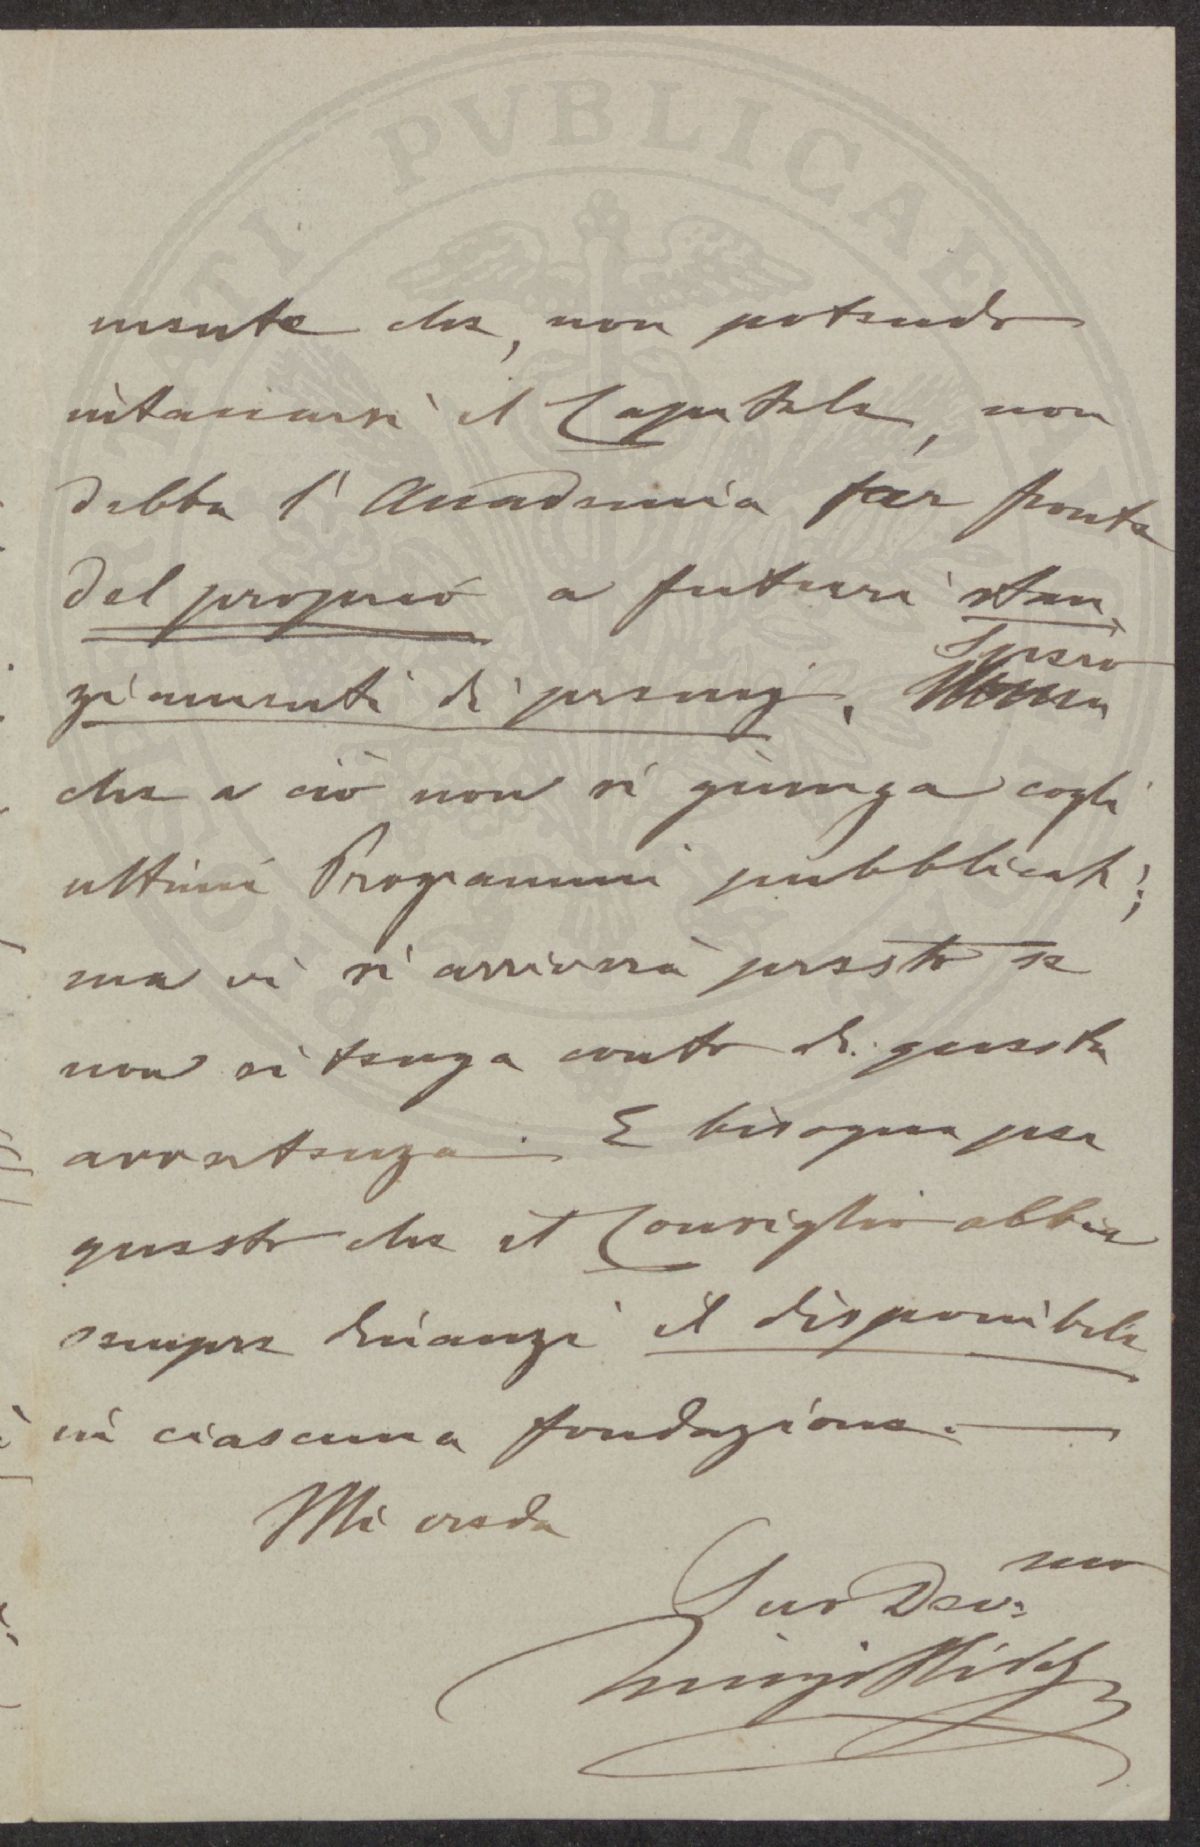 PROSPERITATI PVBLICAE AVGENDAE
mente che, non potendo
intaccarsi il Capitale, non
debba l'Accademia far fronte
del proprio a futuri stan
ziamenti di premij. Spero
che a ciò non si giunga cogli
ultimi Programmi pubblicati;
ma vi si arriverà presto se
non si tenga conto di questa
avvertenza. E bisogna per
questo che il Consiglio abbia
sempre dinanzi il disponibile
in ciascuna fondazione.
Mi creda
Suo Dev.mo
Luigi